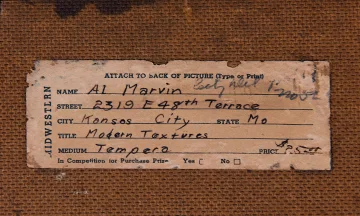 MIDWESTERN
ATTACH TO BACK OF PICTURE (Type or Print)
NAME Al Marvin
STREET 2319 E 48th Terrace
CITY Kansas City STATE Mo
TITLE Modern Textures
MEDIUM Tempera PRICE $
In Competition for Purchase Prize Yes No